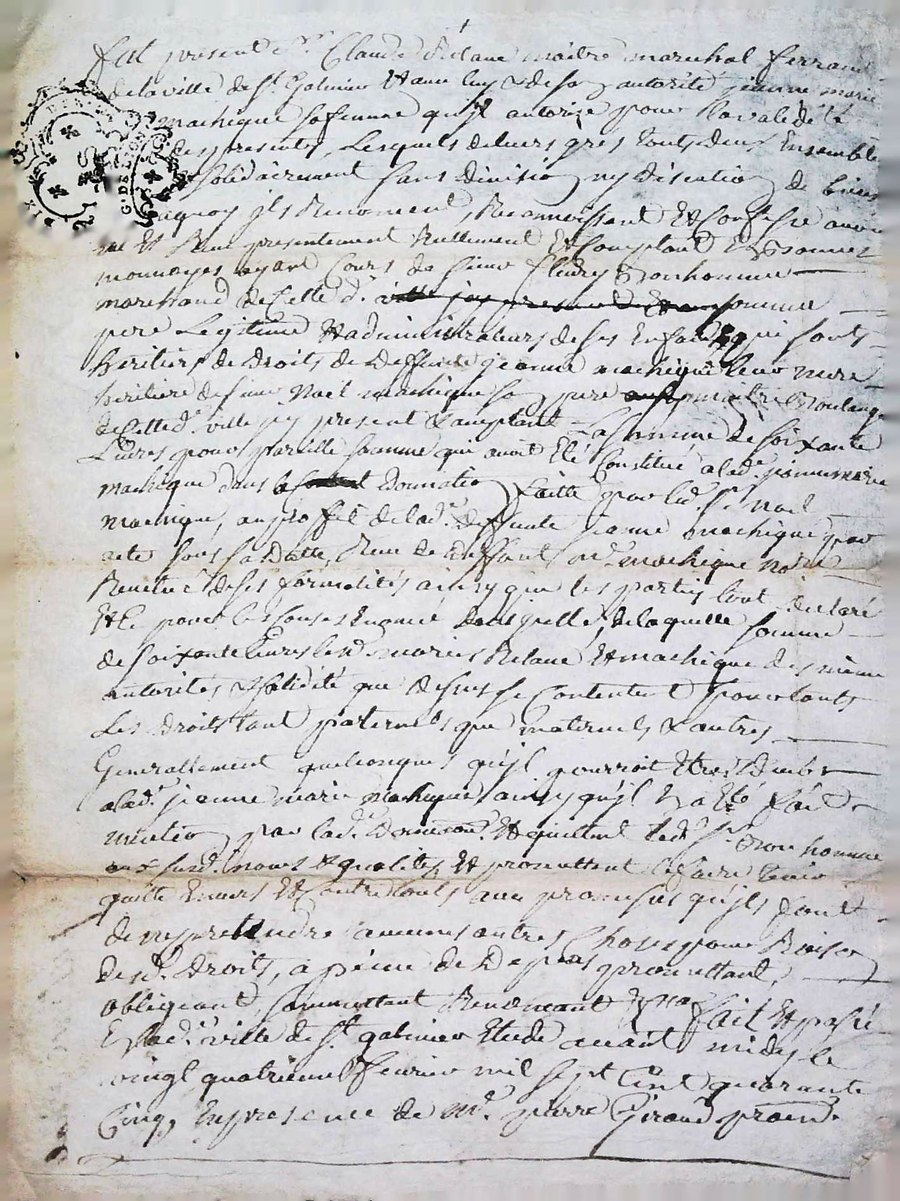 fut present Sr. Claude Relave maitre marechal ferrand
de la ville de St. Galmier & avec luy & de so autorité jeanne marie
machique sa femme qu'jl autorize pour la validité
des presentes, Lesquels de leurs gres touts deux Ensemble
solidairement sans divisio ny discutio de biens
a quoy jls Renoncent, Reconnoissent Et Confessé avoir
eu Et Receu presentement Reellement Et Comptant En bonnes
monnoyes ayant Cours de Sieur fleury Bonhomme
marchand de Cette d.
pere Legitime & administrateur de ses Enfants qui sont
heritiers de Droits de Deffunte jeanne machique leur mere
heritiere de sieur Noel machique so pere maitre Boulanger
de Cette d. ville jcy present & acceptant La somme de soixante
Livres pour pareille somme qui avoit Eté Constitué a lad. jeanne marie
machique dans la donnatio faitte par led. Sr. Noel
machique, au proffit de lad. deffunte jeanne machique par
acte sous sa Datte, Receu de deffunt Me. machique No.re
Revetue de ses formalités ainsy que les partis l'ont declaré
& pour les Causes Enoncé dans jcelle, de laquelle somme
de soixante Livres les d. mariés Relave Et machique des meme
autorités & solidité que dessus se Contentent pour touts
Les droits tant paternels que maternels & autres
Generallement quelconques qu'jl pourroit Etre deub
a lad. jeanne marie machique ainsy qu'jl En a Eté fait
mentio par lad. Donnaon. Et quittent led. Sr. Bonhomme
aux susd. noms & qualités Et promettent le faire tenir
quitte Envers Et Contre touts avec promesses qu'jls font
de ne pretendre aucunes autres Choses pour Raison
desd. Droits, a peine de Depens promettant,
obligeant, soumettant Renonceant &c. fait Et passé
En lad. ville de St. galmier Etude avant midy le
vingt quatrieme fevrier mil sept Cent quarante
Cinq, En presence de Me. pierre Giraud
G. DE LYON
SIX